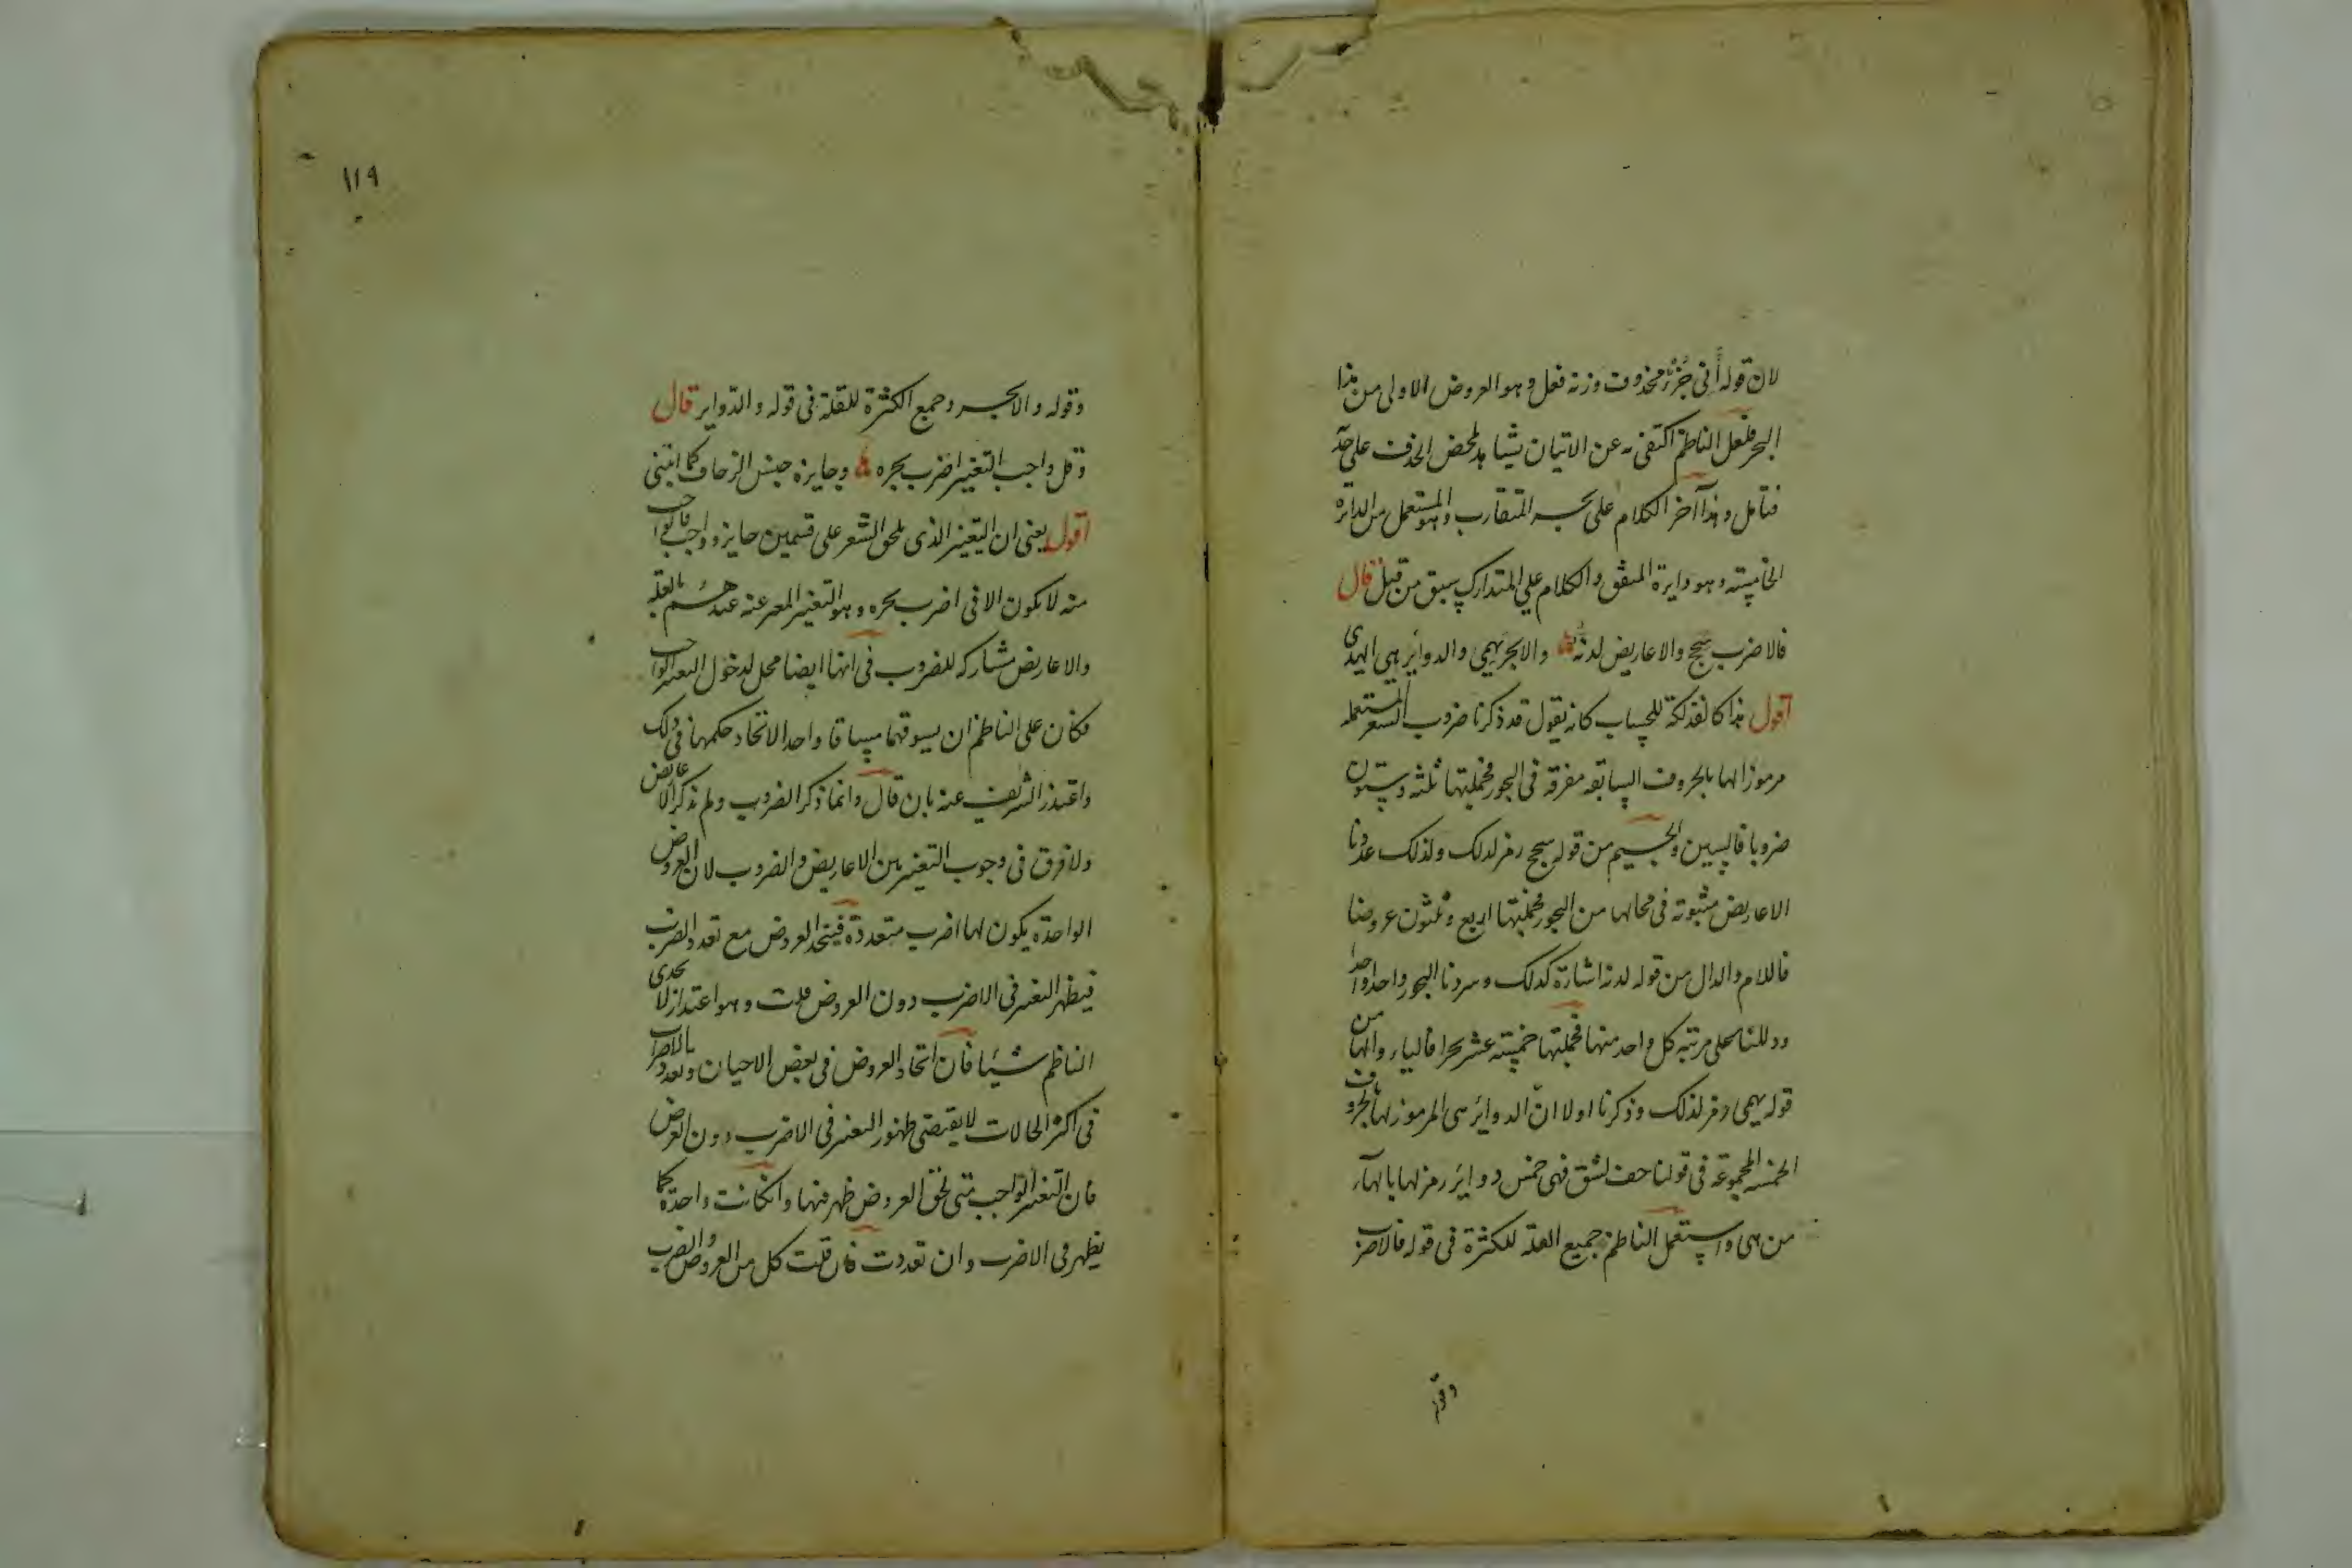 لان قوله أفي جزء محذوف وزنه فعل وهو العروض الاولى من هذا
البحر فلعل الناظم اكتفى به عن الاتيان بشاهد لمحض الحذف على حدّه
فتأمل وهذا آخر الكلام على بحر المتقارب وهو المستعمل من الدائرة
الخامسة وهو دايرة المتفق والكلام على المتدارك سبق من قبل قال
فالاضرب سج والاعاريض لدنه والابحر يهمي والدوائر هي الهدى
اقول هذا كالفذلكة للحساب كانه يقول قد ذكرنا ضروب الشعر المستعمله
مرموزا لها بالحروف السابقه مفرقه في البحور فجملتها ثلثه وستون
ضروبا فالسين والجيم من قوله سج رمز لذلك ولذلك عددنا
الاعاريض مثبوته في محالها من البحور فجملتها اربع وثلثون عروضا
فاللام والدال من قوله لدنه اشارة كذلك وسردنا البحور واحدا واحدا
ودللنا على مرتبه كل واحد منها فجملتها خمسة عشر بحرا فالياء والهاء من
قوله يهمي رمز لذلك وذكرنا اولا انّ الدوائر هي المرموز لها بالحروف
الخمسه المجموعة في قولنا خف لشق فهي خمس دوائر رمز لها بالهاء
من هي واستعمل الناظم جميع القلة للكثرة في قوله فالاضرب
وقوله
١١٩
وقوله والابحر وجميع الكثرة للقلة في قوله والدّواير قال
وقل واجب التغيير اضرب بحره وجايزه جنس الزحاف كما انبنى
اقول يعني ان التغيير الذي يلحق الشعر على قسمين جايز وواجب فالواجب
منه لا يكون الا في اضرب بحره وهو التغيير المعبر عنه عندهم بالعلة
والاعاريض مشاركه للضروب في انها ايضا محل لدخول التغيير الواجب
فكان على الناظم ان يسوقهما مساقا واحدا لاتحاد حكمهما في ذلك
واعتذر الشريف عنه بان قال وانما ذكر الضروب ولم يذكر الاعاريض
ولا فرق في وجوب التغيير بين الاعاريض والضروب لان العروض
الواحدة يكون لها اضرب متعددة فيتحد العروض مع تعدد الضرب
فيظهر التغيير في الاضرب دون العروض قلت وهو اعتذار لا يجدي
الناظم شيئا فان اتحاد العروض في بعض الاحيان وتعدد الاضراب
في اكثر الحالات لا يقتضي ظهور التغيير في الاضرب دون العروض
فان التغيير الواجب متى لحق العروض ظهر منها وان كانت واحدة كما
يظهر في الاضرب وان تعددت فان قلت كل من العروض والضرب